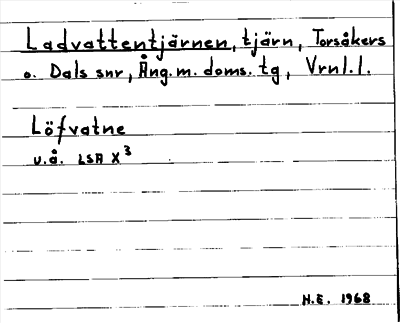 Ladvattentjärnen, tjärn, Torsåkers
o. Dals snr, Ång. m. doms. tg, Vrnl. l.
Löfvatne
u.å. LSA X³
H.E. 1968